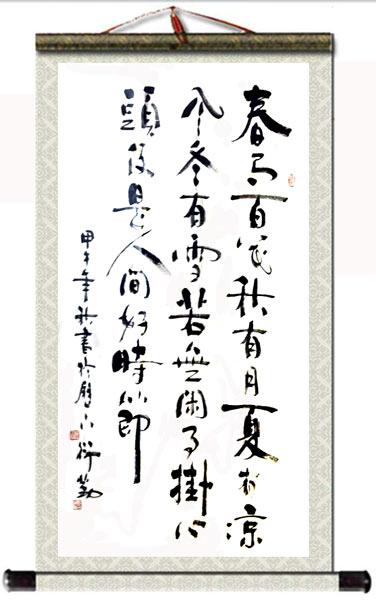 春有百花秋有月夏有涼
风冬有雪若無闲事掛心
頭便是人间好時節
甲午年秋書於歷下